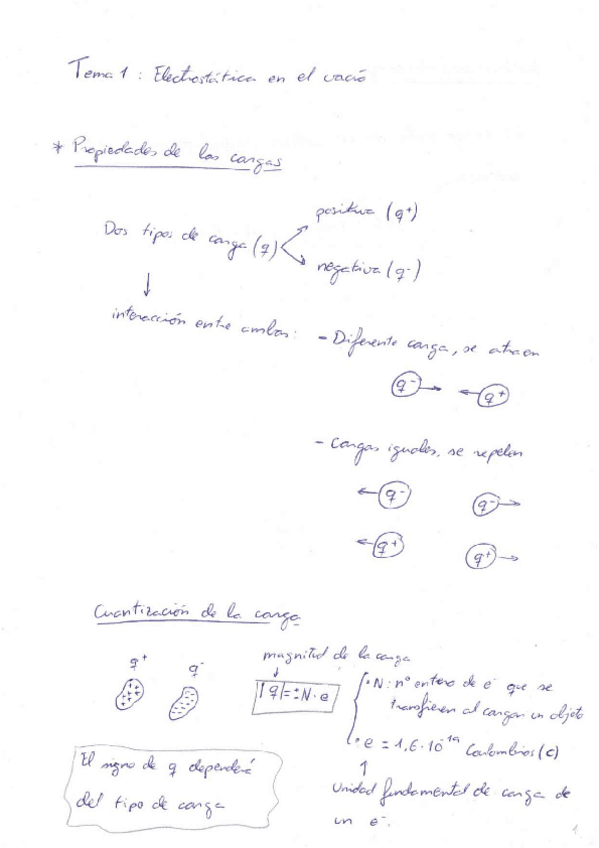 Tema 1 : Electrostática en el vacío
* Propiedades de las cargas
positiva (q+)
Dos tipos de carga (q)
negativa (q-)
interacción entre ambas:
- Diferente carga, se atraen
q- q+
- Cargas iguales, se repelen
q- q-
q+ q+
Cuantización de la carga
q+ q-
magnitud de la carga
|q|=±N·e
• N: nº entero de e- que se
transfieren al cargar un objeto
• e = 1,6·10-19 Coulombios (C)
Unidad fundamental de carga de
un e-.
El signo de q dependerá
del tipo de carga
1